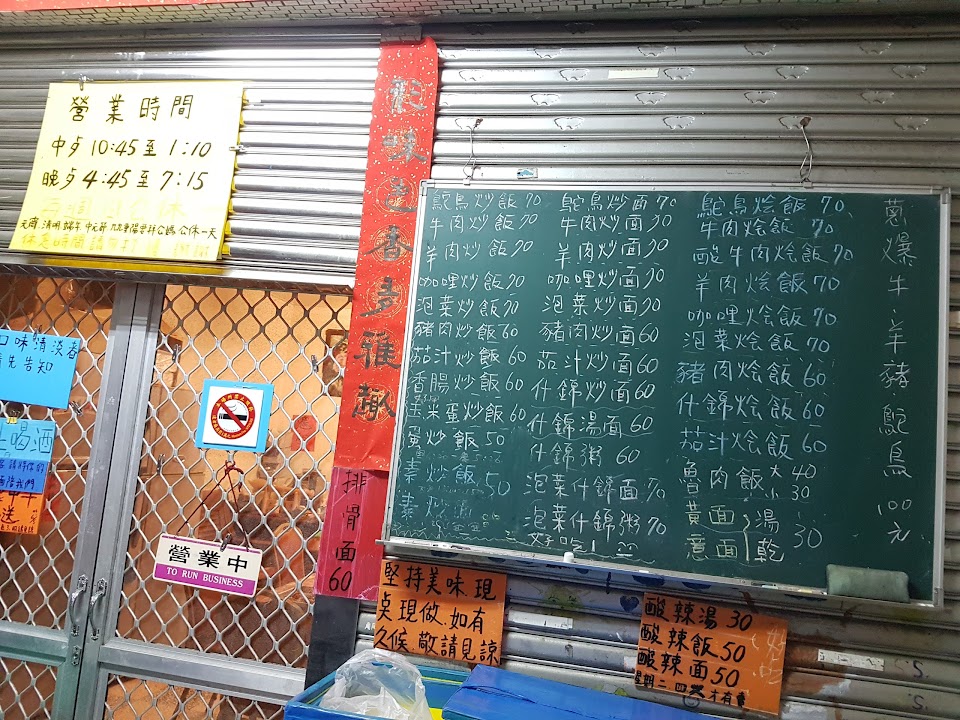 營業時間
中午 10:45 至 1:10
晚上 4:45 至 7:15
口味清淡者
請先告知
喝酒
送
營業中
TO RUN BUSINESS
味
香多雅趣
排骨面60
鴕鳥炒飯 70
牛肉炒飯 70
羊肉炒飯 70
咖哩炒飯 70
泡菜炒飯 70
豬肉炒飯 60
茄汁炒飯 60
香腸炒飯 60
玉米蛋炒飯 60
蛋炒飯 50
素炒飯 50
鴕鳥炒面 70
牛肉炒面 70
羊肉炒面 70
咖哩炒面 70
泡菜炒面 70
豬肉炒面 60
茄汁炒面 60
什錦炒面 60
什錦湯面 60
什錦粥 60
泡菜什錦面 70
泡菜什錦粥 70
好吃!
鴕鳥燴飯 70
牛肉燴飯 70
酸牛肉燴飯 70
羊肉燴飯 70
咖哩燴飯 70
泡菜燴飯 70
豬肉燴飯 60
什錦燴飯 60
茄汁燴飯 60
魚肉飯 大 40
小 30
黃面 湯
意面 乾 30
蔥爆牛.羊.豬.鴕鳥100元
堅持美味現
點現做.如有
久候.敬請見諒
酸辣湯 30
酸辣飯 50
酸辣面 50
星期二 四 才有賣